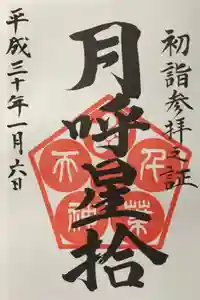 初詣参拝之証
月呼星拾
平成三十年一月六日